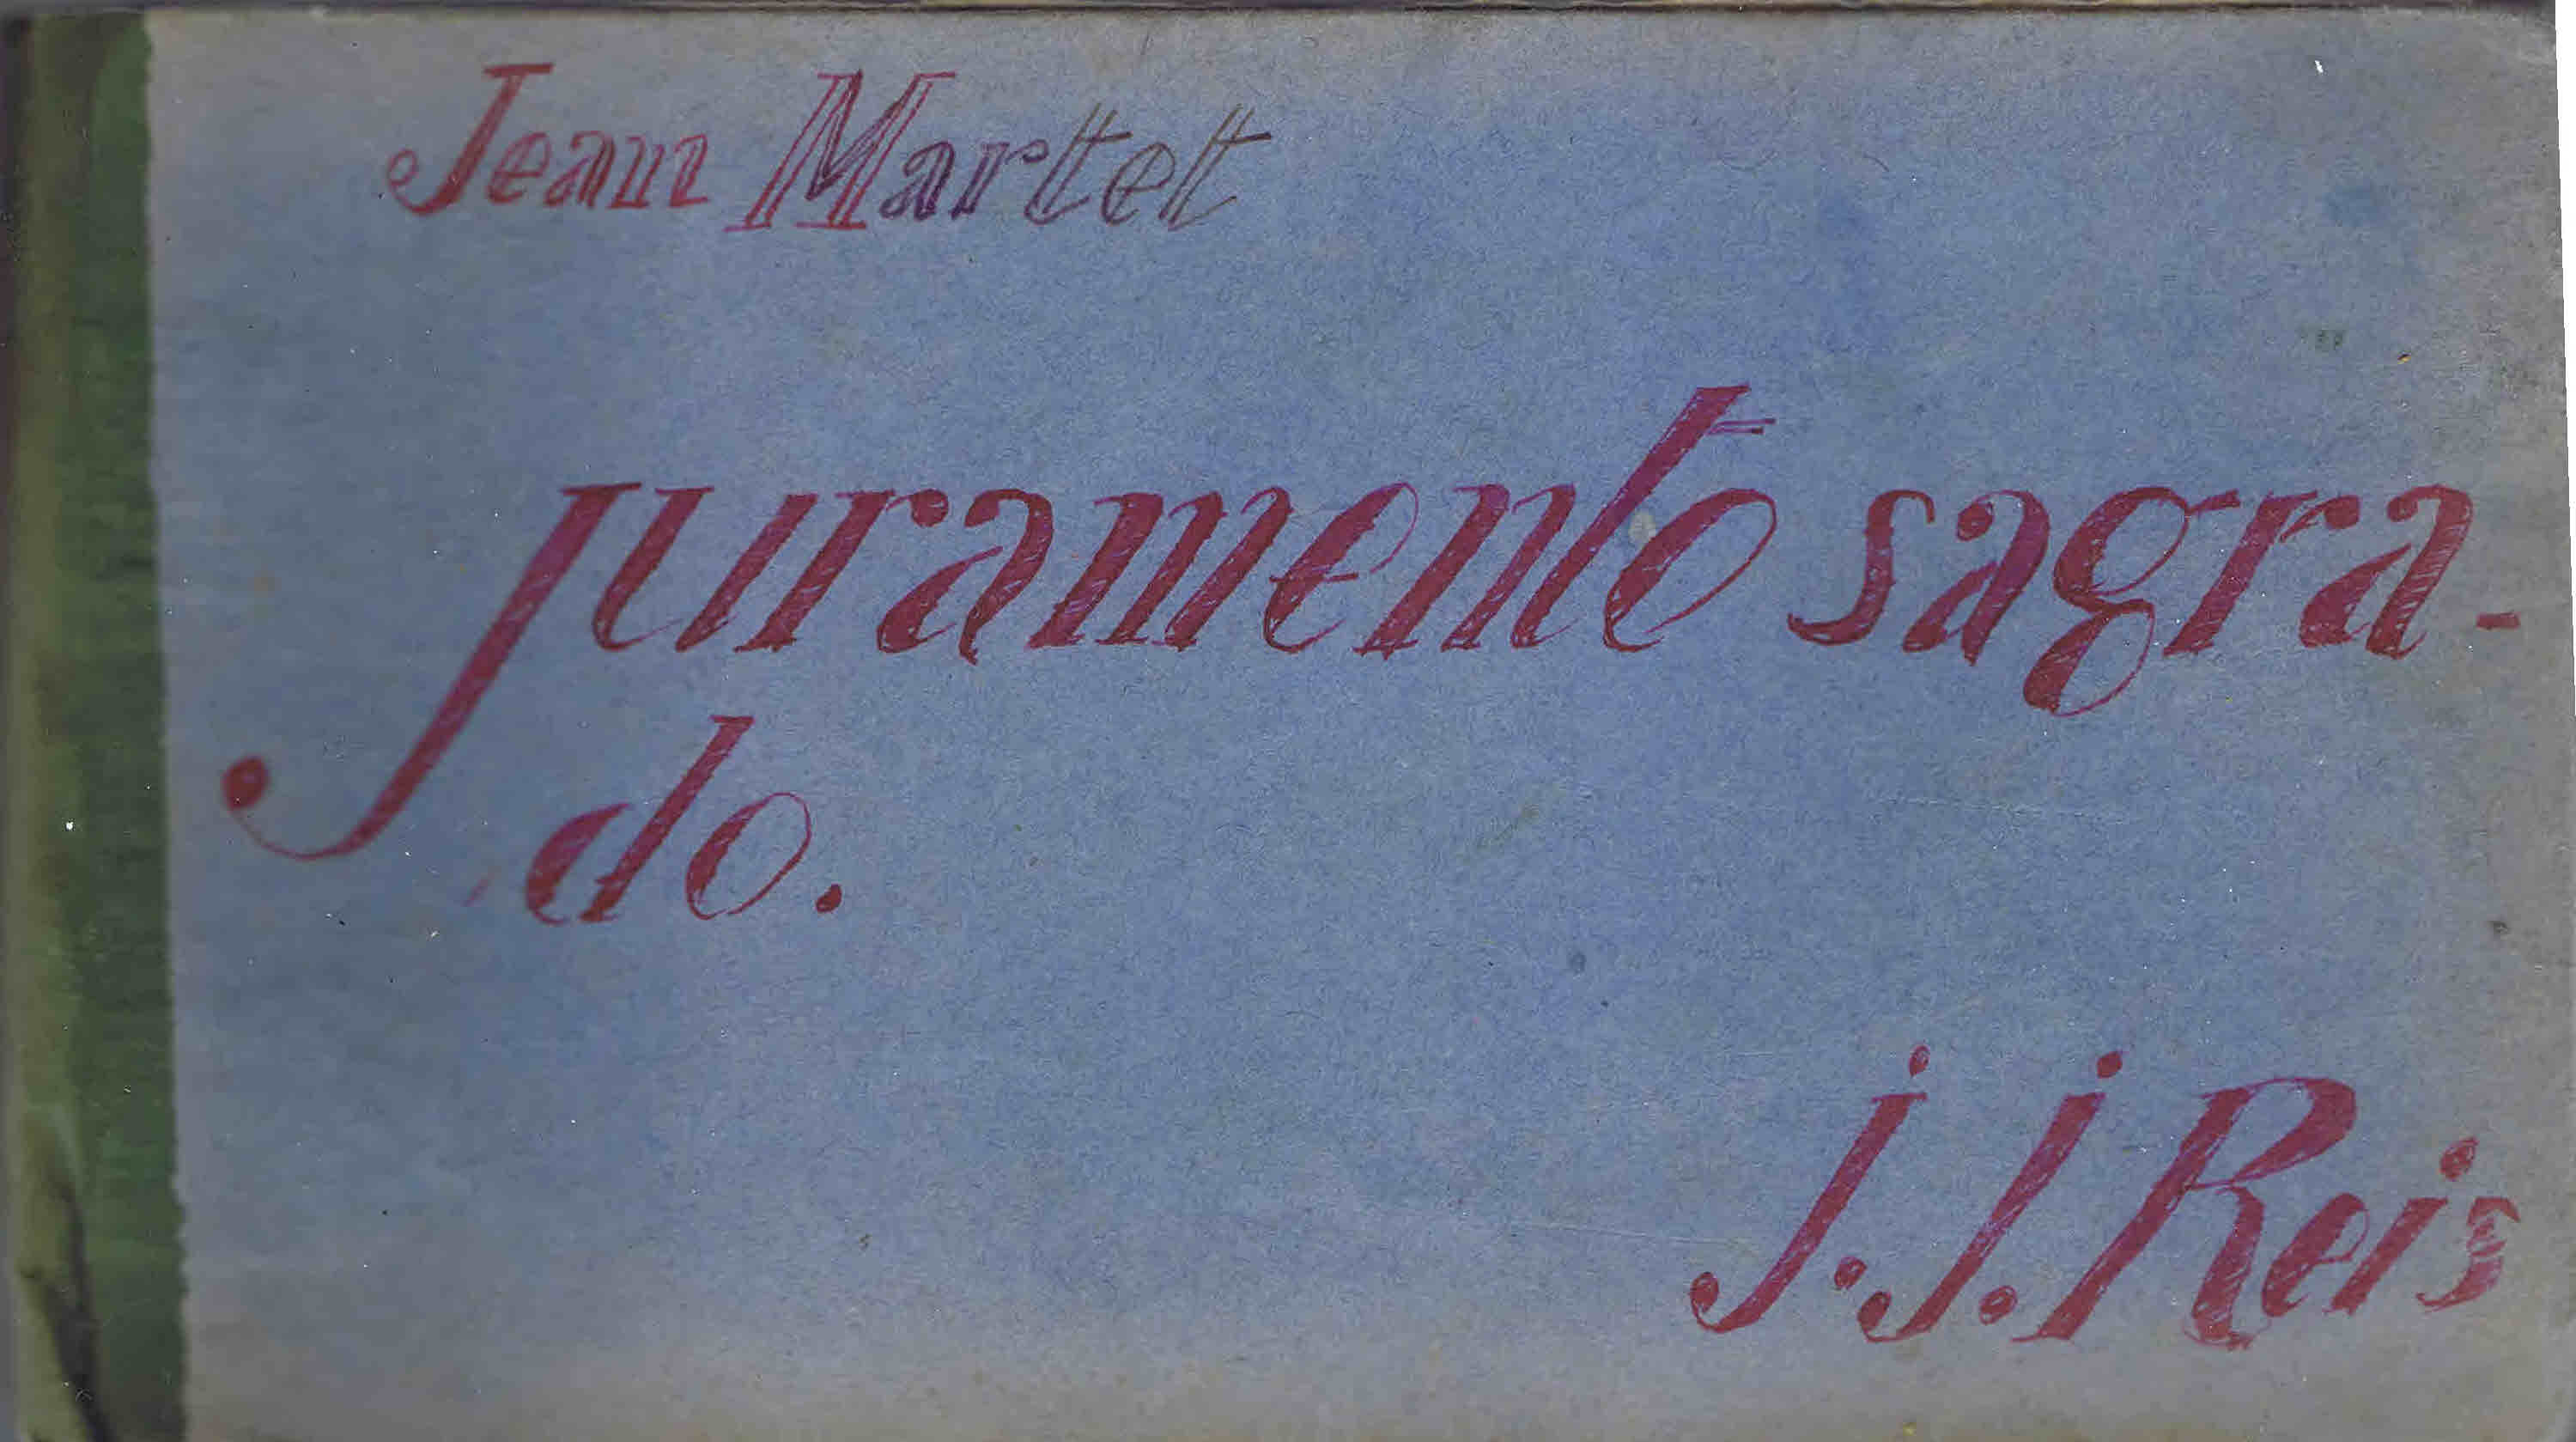 Jean Martet
Juramento sagra-
do.
J. J. Reis